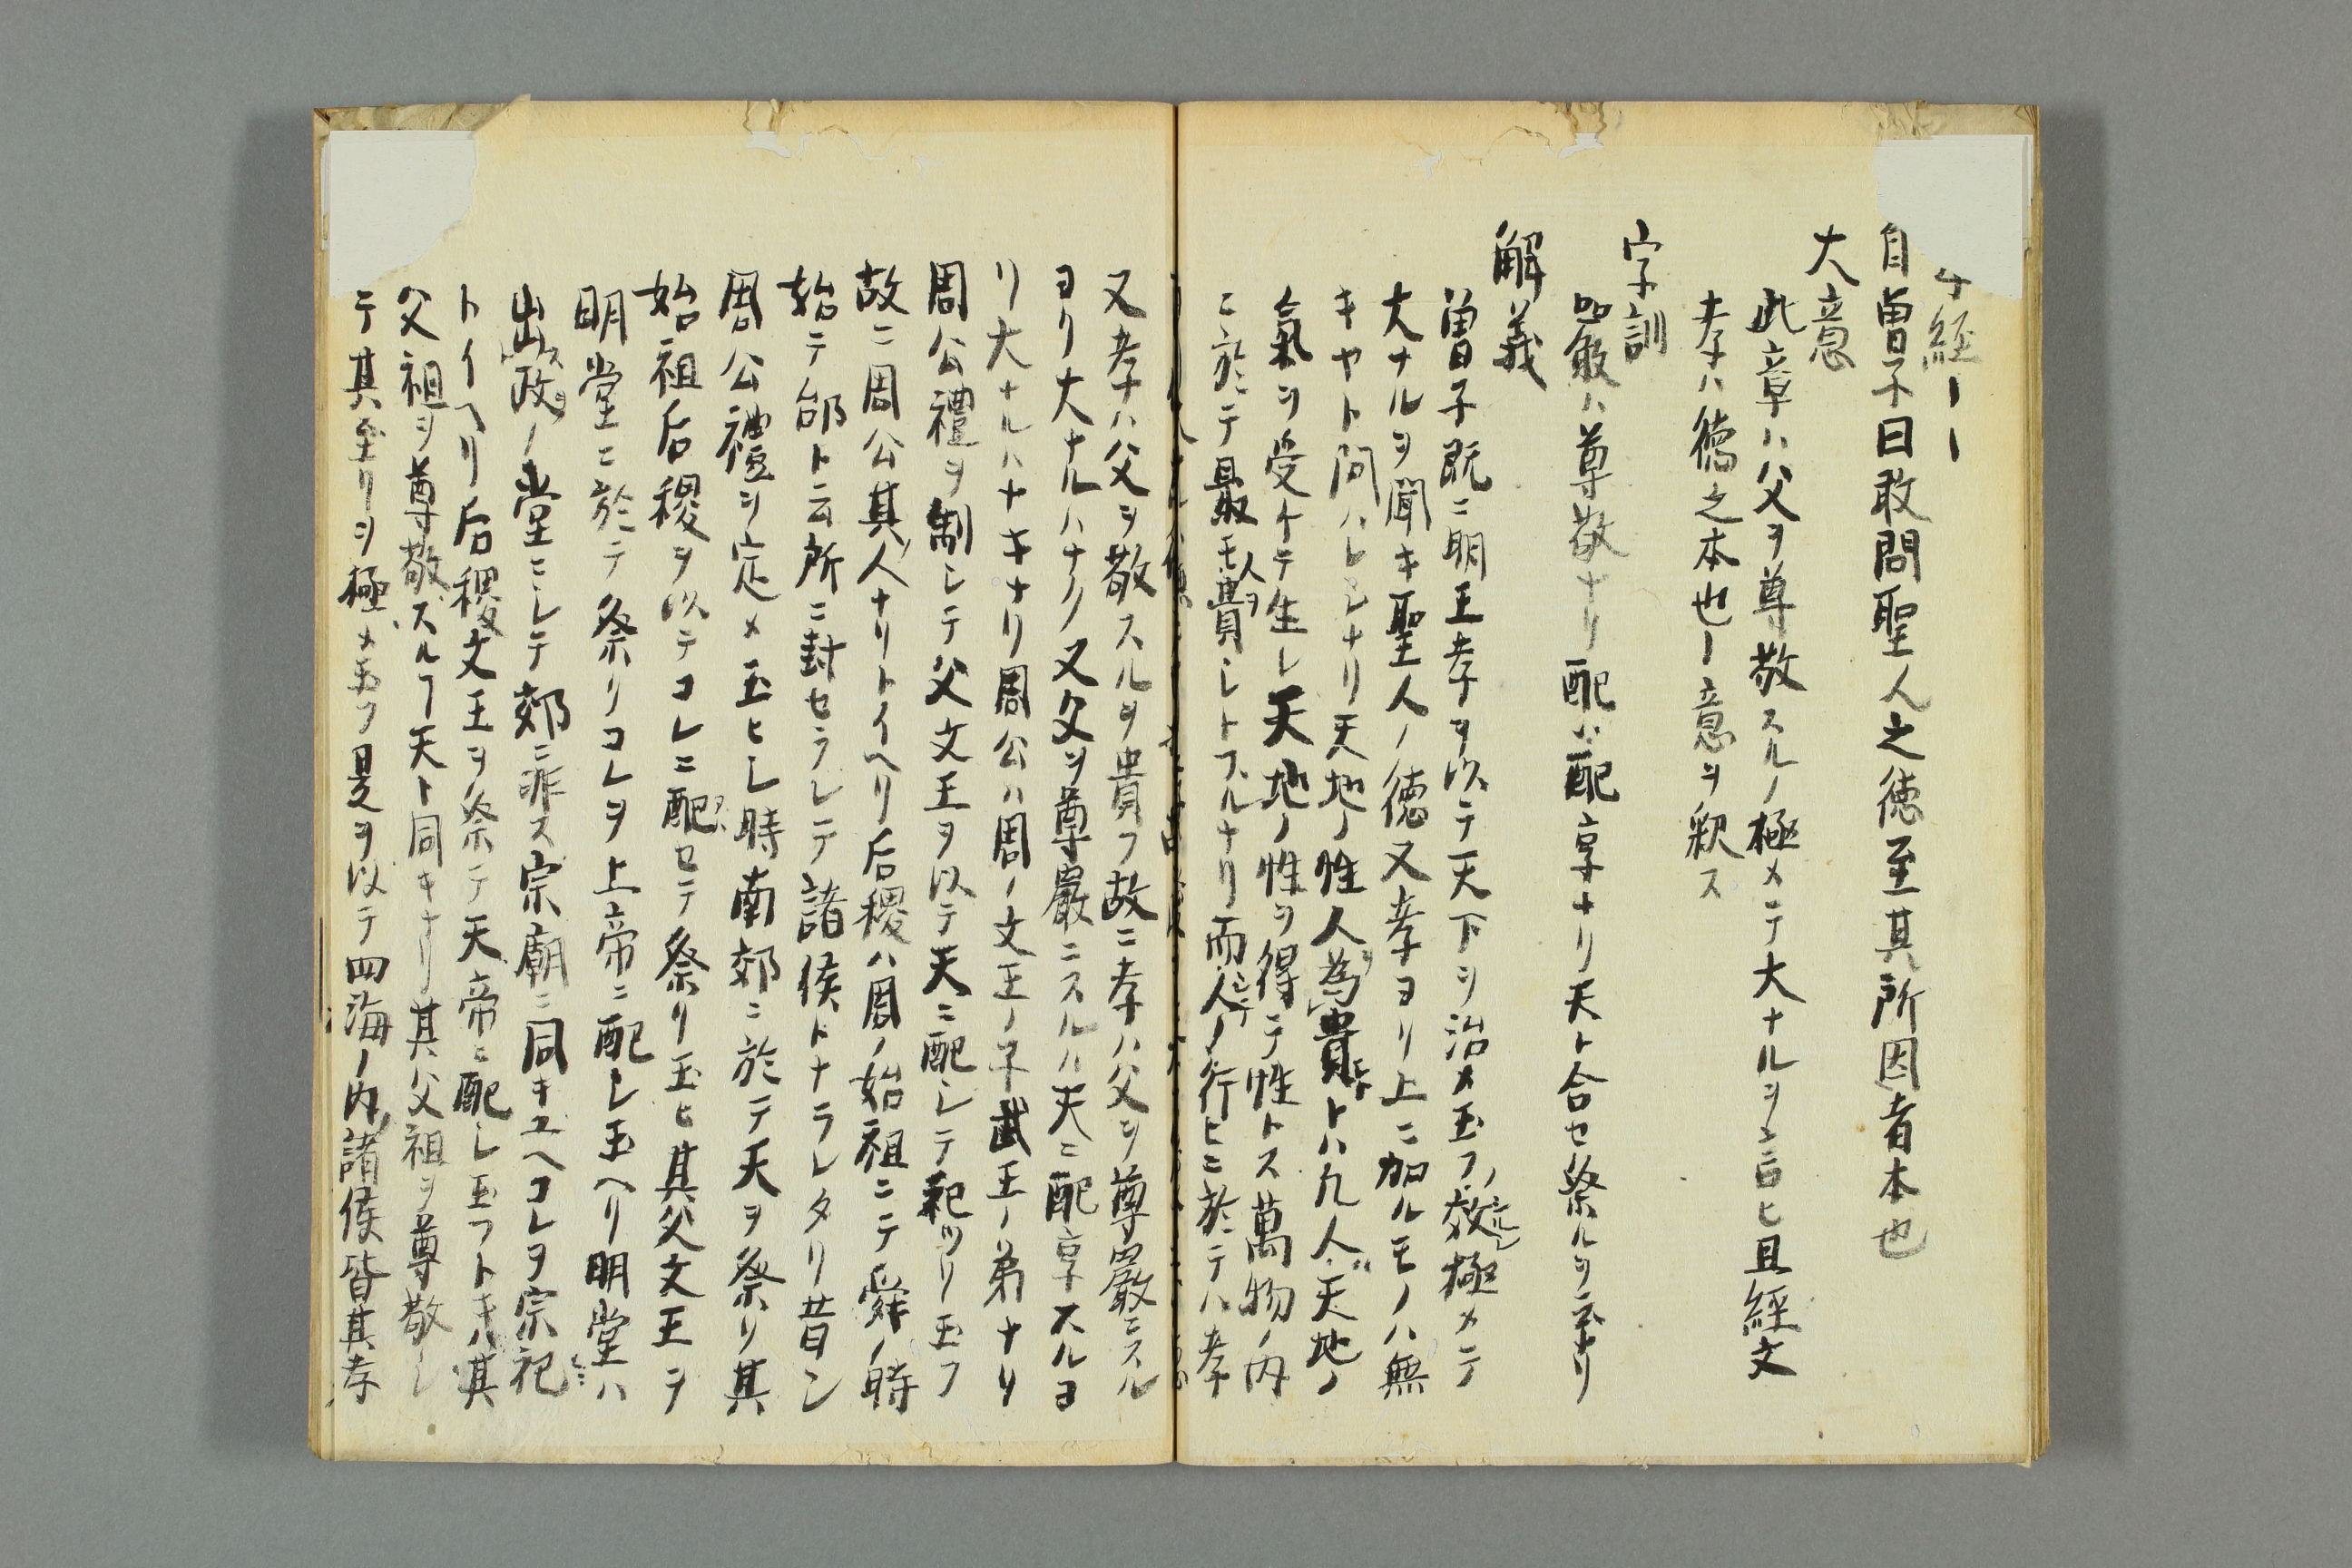 経ーー
自曽子曰敢問聖人之徳至其所因者本也
大意
此章ハ父ヲ尊敬スルノ極メテ大ナルヲ言ヒ且経文
孝ハ徳之本也ー意ヲ釈ス
字訓
嚴ハ尊敬ナリ配ハ配享ナリ天ト合セ祭ルヲ云ナリ
解義
曽子既ニ明王孝ヲ以テ天下ヲ治メ玉フノ效極メテ
大ナルヲ聞キ聖人ノ徳又孝ヨリ上ニ加ルモノハ無
キヤト問ハレシナリ天地ノ性人為貴トハ凡人ハ天地ノ
氣ヲ受ケテ生レ天地ノ性ヲ得テ性トス萬物ノ内
ニ於テ最モ人ヲ貴シトスルナリ而人ノ行ヒニ於テハ孝
又孝ハ父ヲ敬スルヲ貴フ故ニ孝ハ父ヲ尊嚴ニスル
ヨリ大ナルハナク又父ヲ尊嚴ニスルハ天ニ配享スルヨ
リ大ナルハナキナリ周公ハ周ノ文王ノ子武王ノ弟ナリ
周公禮ヲ制シテ父文王ヲ以テ天ニ配シテ祀ツリ玉フ
故ニ周公其人ナリトイヘリ后稷ハ周ノ始祖ニテ舜ノ時
始テ邰ト云所ニ封セラレテ諸侯トナラレタリ昔シ
周公禮ヲ定メ玉ヒシ時南郊ニ於テ天ヲ祭リ其
始祖后稷ヲ以テコレニ配セテ祭リ玉ヒ其父文王ヲ
明堂ニ於テ祭リコレヲ上帝ニ配シ玉ヘリ明堂ハ
出政ノ堂ニシテ郊ニ非ス宗廟ニ同キユヘコレヲ宗祀
トイヘリ后稷文王ヲ祭テ天帝ニ配シ玉フトキハ其
父祖ヲ尊敬スルヿ天ト同キナリ其父祖ヲ尊敬シ
テ其至リヲ極メ玉フ是ヲ以テ四海ノ内諸侯皆其孝